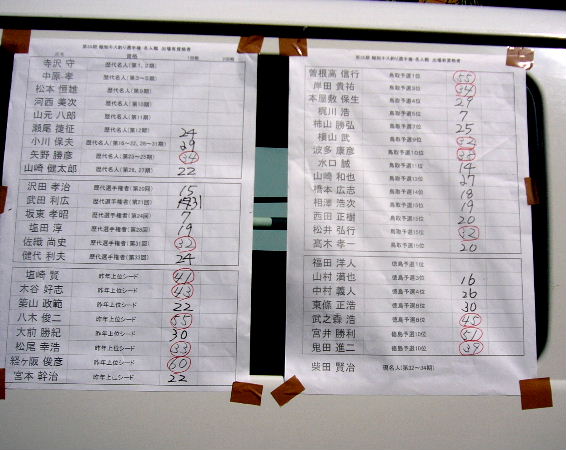 第35期 報知キス釣り選手権 名人戦 出場有資格者
氏名 資格 1回戦 2回戦
寺沢 守 歴代名人(第1、2期)
中原 孝 歴代名人(第3~5期)
松本 恒雄 歴代名人(第9期)
河西 美次 歴代名人(第10期)
山元 八郎 歴代名人(第11期)
瀬尾 捷征 歴代名人(第12期) 24
小川 保夫 29
矢野 勝彦 歴代名人(第23~25期) 34
山崎 健太郎 歴代名人(第26、27期) 22
沢田 孝治 歴代選手権者(第20回) 15
武田 利広 歴代選手権者(第21回)
坂東 孝昭 歴代選手権者(第24回) 7
塩田 淳 歴代選手権者(第28回) 19
佐織 尚史 歴代選手権者(第31回) 32
健代 利夫 歴代選手権者(第33回) 24
塩崎 賢 昨年上位シード 41
木谷 好志 昨年上位シード 43
築山 政範 昨年上位シード 22
八木 俊二 昨年上位シード 55
大前 勝紀 昨年上位シード 30
松尾 幸浩 昨年上位シード 33
経ヶ阪 俊彦 昨年上位シード 60
宮本 幹治 昨年上位シード 22
第35期 報知キス釣り選手権 名人戦 出場有資格者
曽根高 信行 鳥取予選1位 55
岸田 貴祐 鳥取予選3位 34
本屋敷 保生 鳥取予選4位 29
梶川 浩 鳥取予選5位 7
柿山 勝弘 鳥取予選7位 25
横山 武 鳥取予選9位 32
波多 康彦 鳥取予選10位
水口 誠 鳥取予選11位 14
山崎 和也 鳥取予選13位 27
橋本 広志 鳥取予選14位 18
相澤 浩次 鳥取予選15位 19
西田 正樹 鳥取予選15位 20
松井 弘行 鳥取予選15位 32
高木 孝一 鳥取予選15位 20
福田 洋人 徳島予選1位
山村 満也 徳島予選3位 16
中村 義人 徳島予選4位 26
東條 正浩 徳島予選8位 30
武之森 浩 徳島予選8位 45
宮井 勝利 徳島予選10位 51
鬼田 進二 徳島予選10位 39
柴田 賢治 現名人(第32~34期)